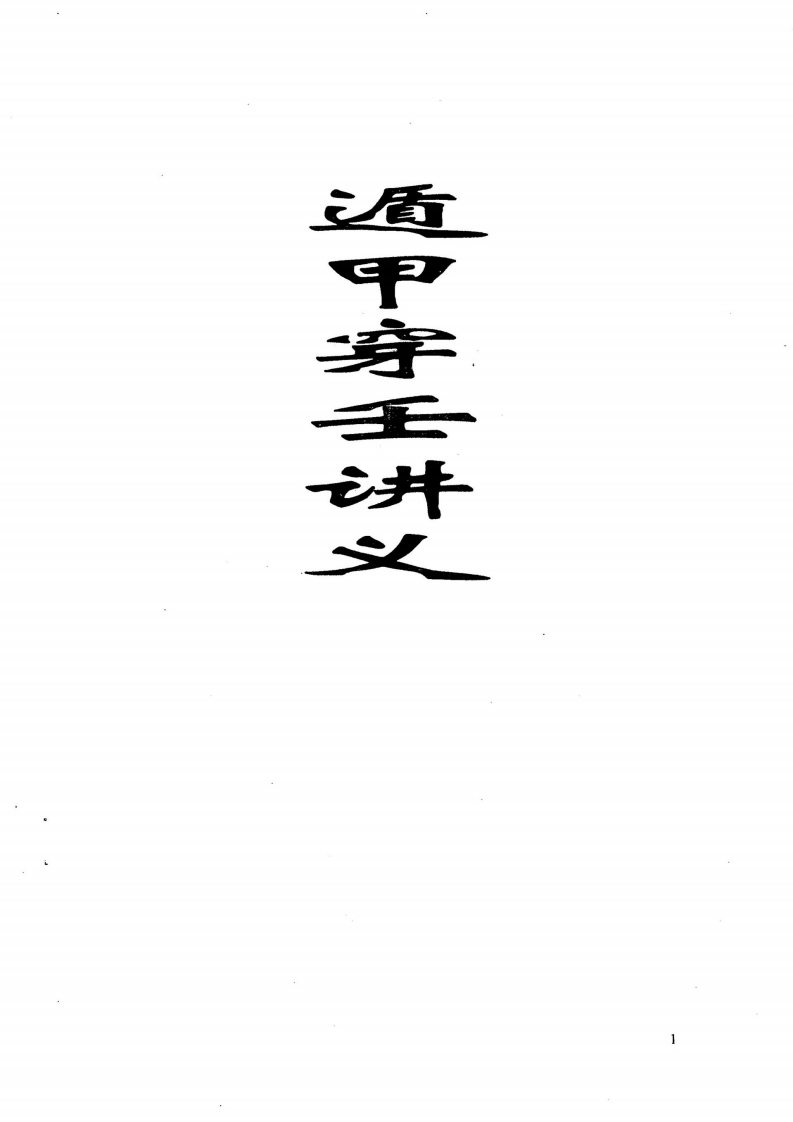 遁甲穿壬讲义
1